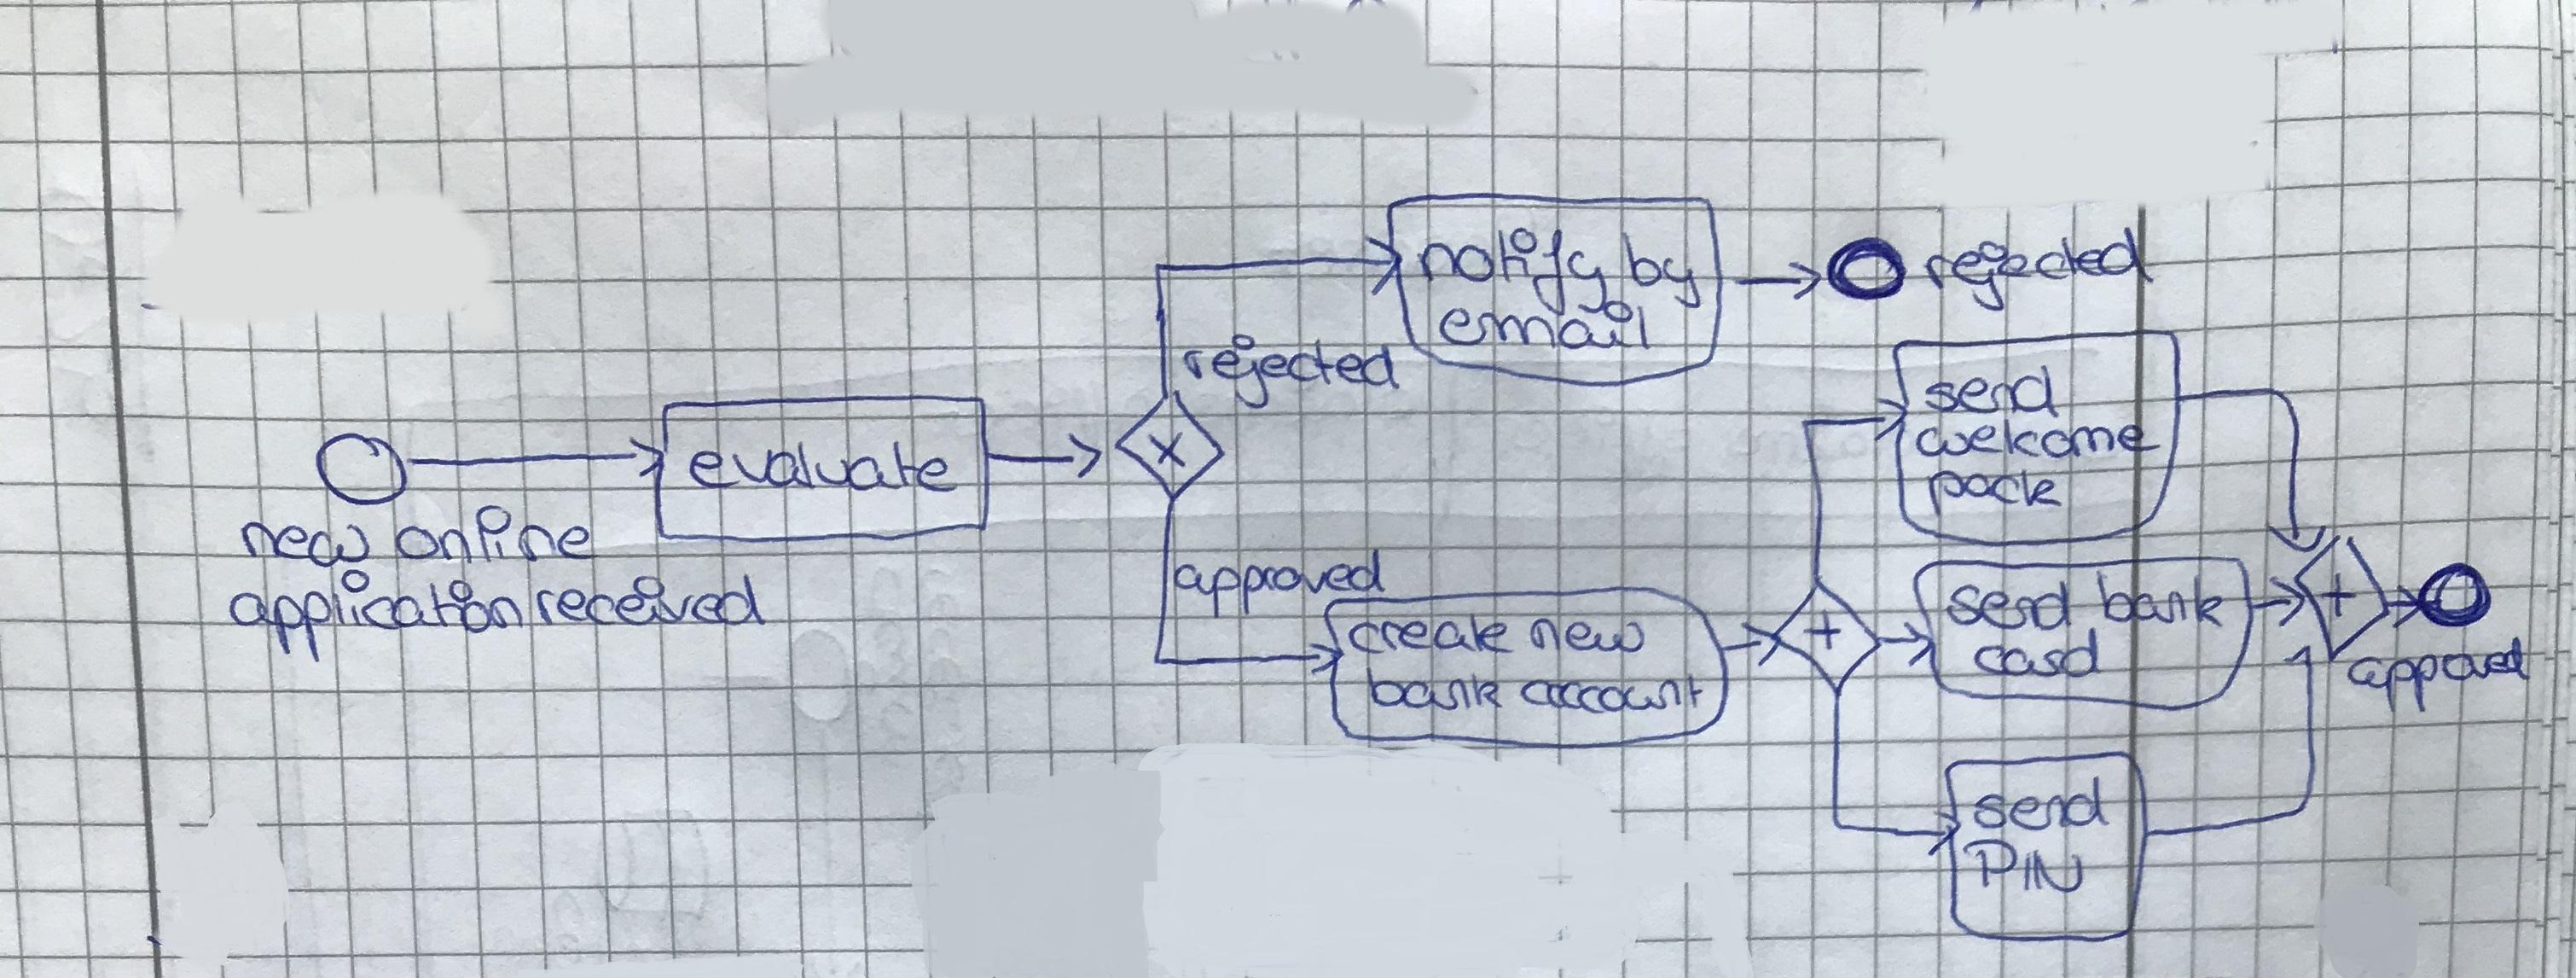 new online
application received
evaluate
X
rejected
notify by
email
rejected
approved
create new
bank account
+
send
welcome
pack
send bank
card
send
PIN
+
approved